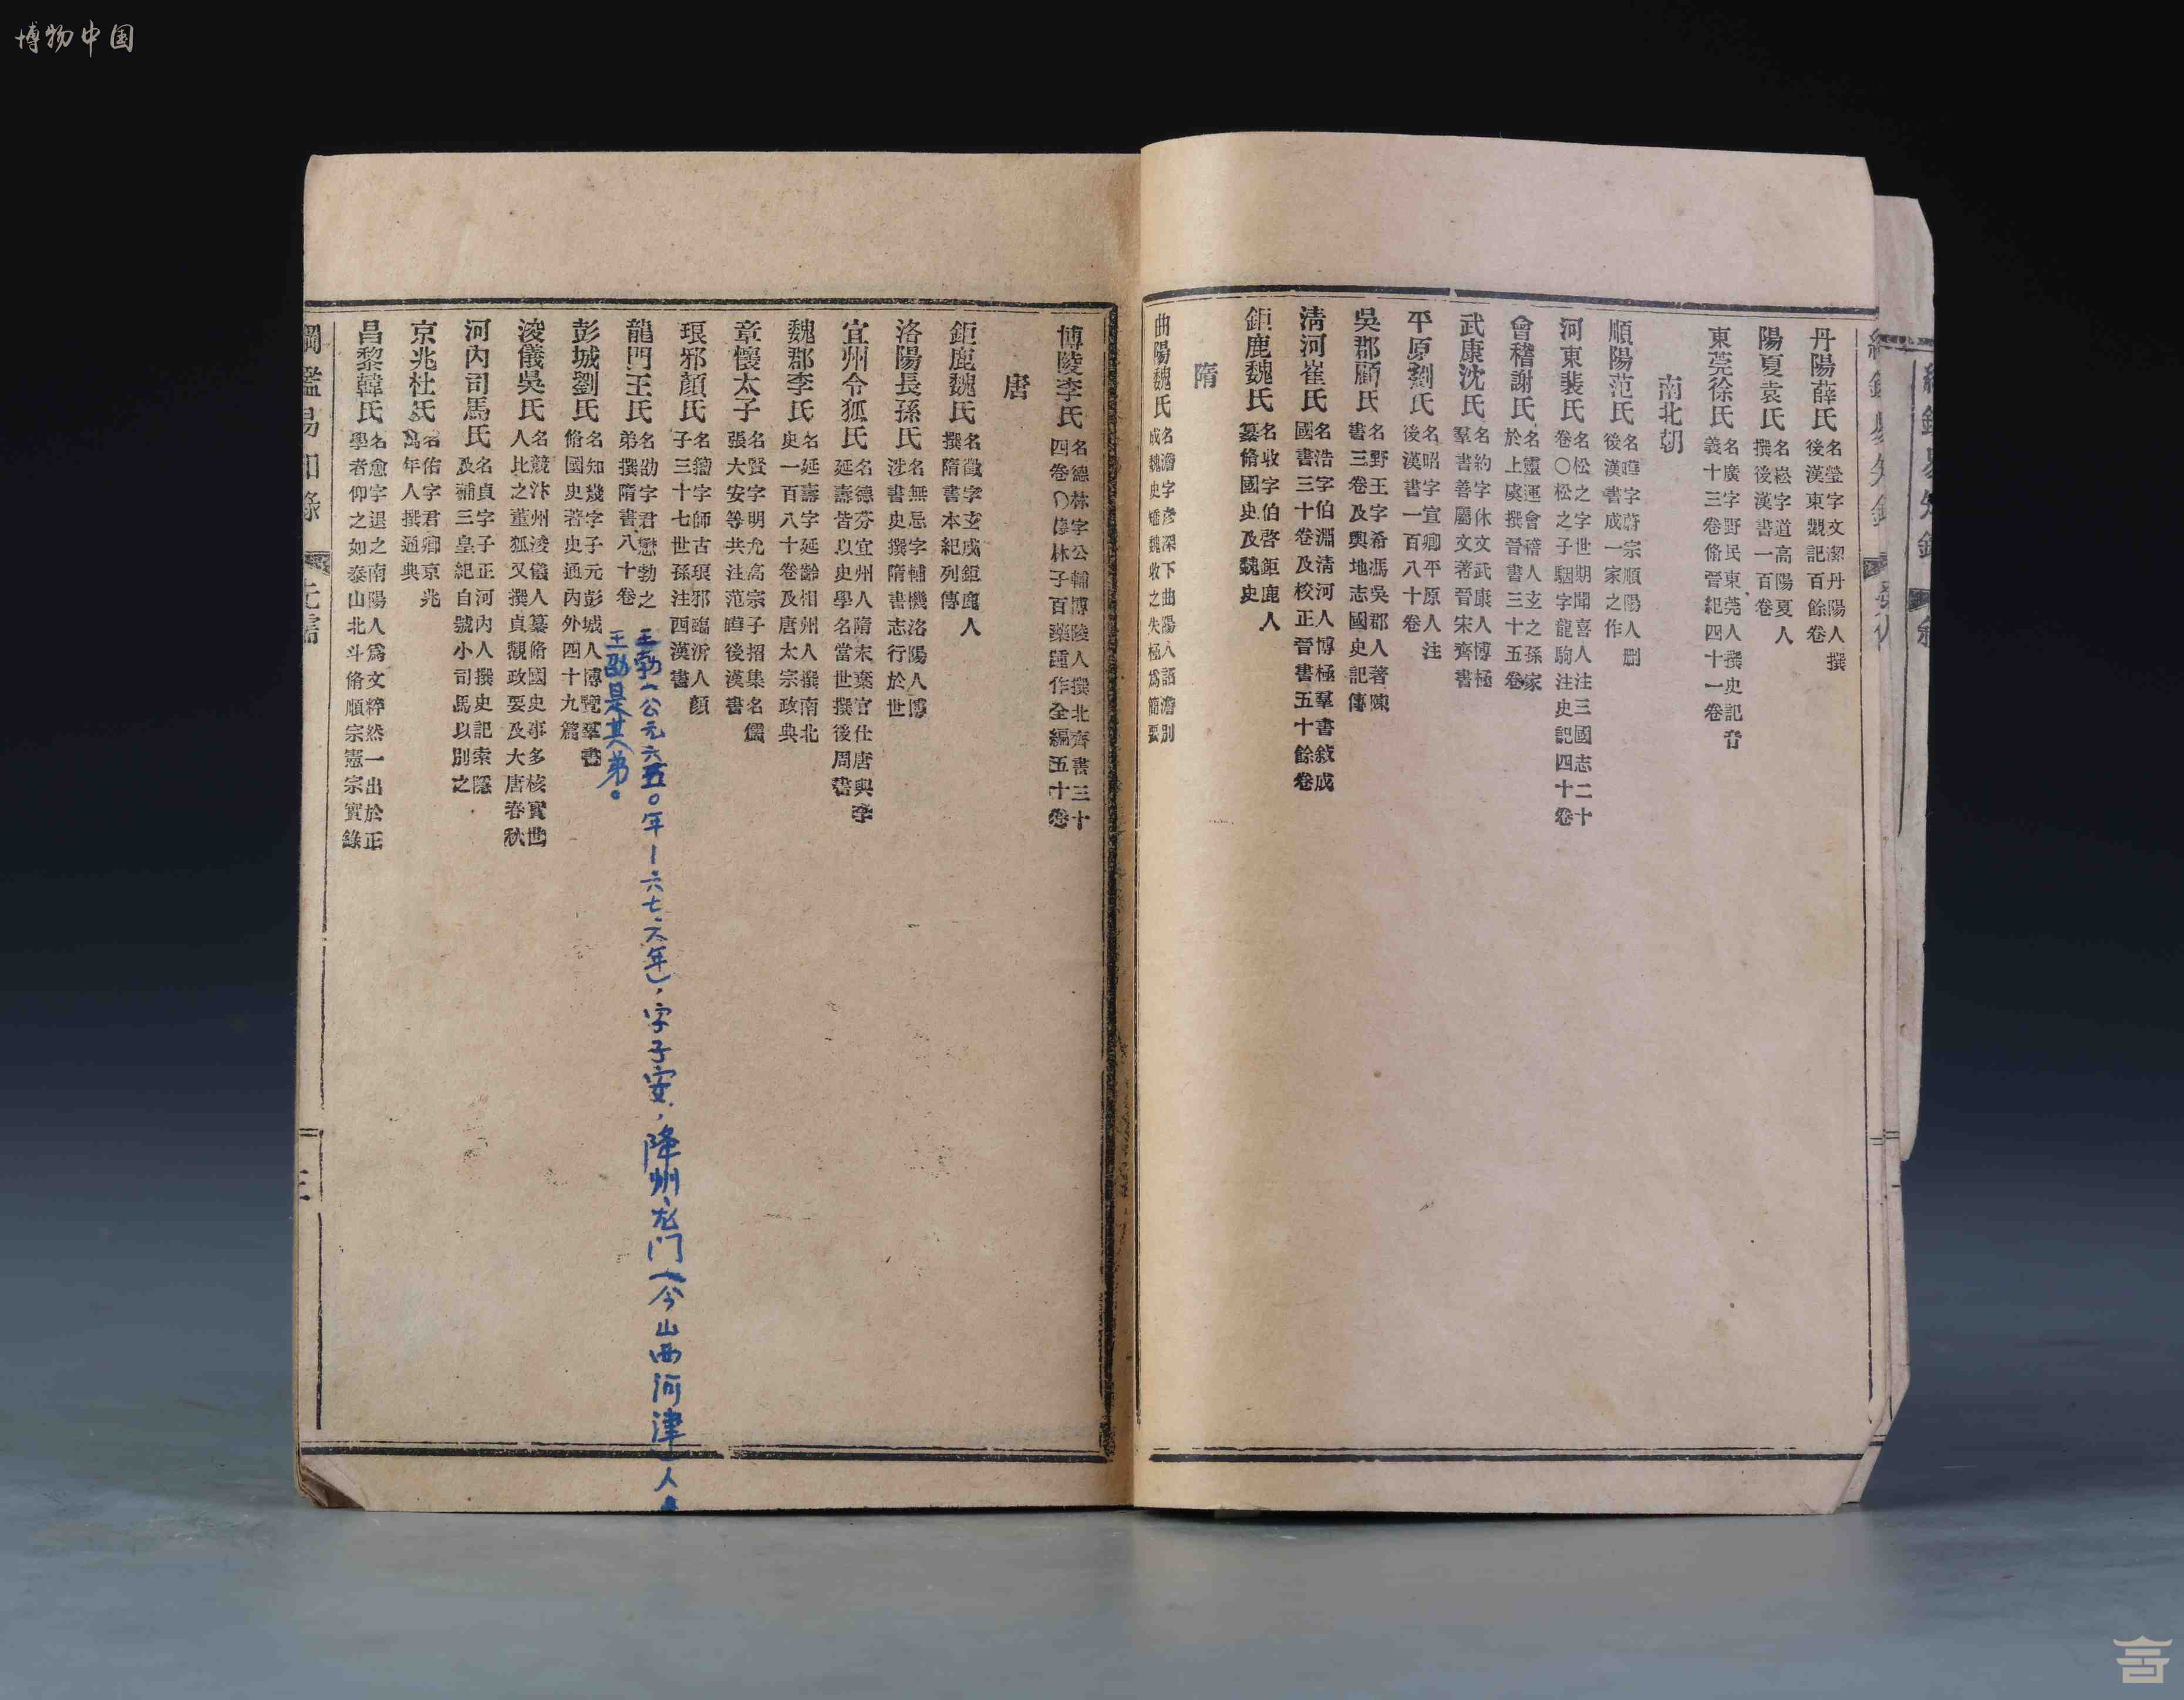 博物中国
丹陽薛氏 名瑩字文潔丹陽人撰後漢東觀記百餘卷
陽夏袁氏 名崧字道高陽夏人撰後漢書一百卷
東莞徐氏 名廣字野民東莞人撰史記音義十三卷脩晉紀四十一卷
南北朝
順陽范氏 名曄字蔚宗順陽人刪後漢書成一家之作
河東裴氏 名松之字世期聞喜人注三國志二十卷○松之子駰字龍駒注史記四十卷
會稽謝氏 名靈運會稽人玄之孫家於上虞撰晉書三十五卷
武康沈氏 名約字休文武康人博極羣書善屬文著晉宋齊書
平原劉氏 名昭字宣卿平原人注後漢書一百八十卷
吳郡顧氏 名野王字希馮吳郡人著陳書三卷及輿地志國史記傳
清河崔氏 名浩字伯淵清河人博極羣書敍成國書三十卷及校正晉書五十餘卷
鉅鹿魏氏 名收字伯啓鉅鹿人纂脩國史及魏史
隋
曲陽魏氏 名澹字彥深下曲陽人詔澹別成魏史矯魏收之失極爲簡要
博陵李氏 名德林字公輔博陵人撰北齊書三十四卷○德林子百藥踵作全編五十卷
唐
鉅鹿魏氏 名徵字玄成鉅鹿人撰隋書本紀列傳
洛陽長孫氏 名無忌字輔機洛陽人博涉書史撰隋書志行於世
宜州令狐氏 名德芬宜州人隋末棄官仕唐與李延壽皆以史學名當世撰後周書
魏郡李氏 名延壽字延齡相州人撰南北史一百八十卷及唐太宗政典
章懷太子 名賢字明允高宗子招集名儒張大安等共注范曄後漢書
琅邪顏氏 名籀字師古琅邪臨沂人顏子三十七世孫注西漢書
龍門王氏 名勔字君懋勃之弟撰隋書八十卷
王勃（公元六五〇年—六七六年），字子安，降州龙门（今山西河津）人
王勔是其弟。
彭城劉氏 名知幾字子元彭城人博覽羣書脩國史著史通內外四十九篇
浚儀吳氏 名競汴州浚儀人纂脩國史事多核實世人比之董狐又撰貞觀政要及大唐春秋
河內司馬氏 名貞字子正河內人撰史記索隱及補三皇紀自號小司馬以別之
京兆杜氏 名佑字君卿京兆萬年人撰通典
昌黎韓氏 名愈字退之南陽人爲文粹然一出於正學者仰之如泰山北斗脩順宗憲宗實錄
綱鑑易知錄